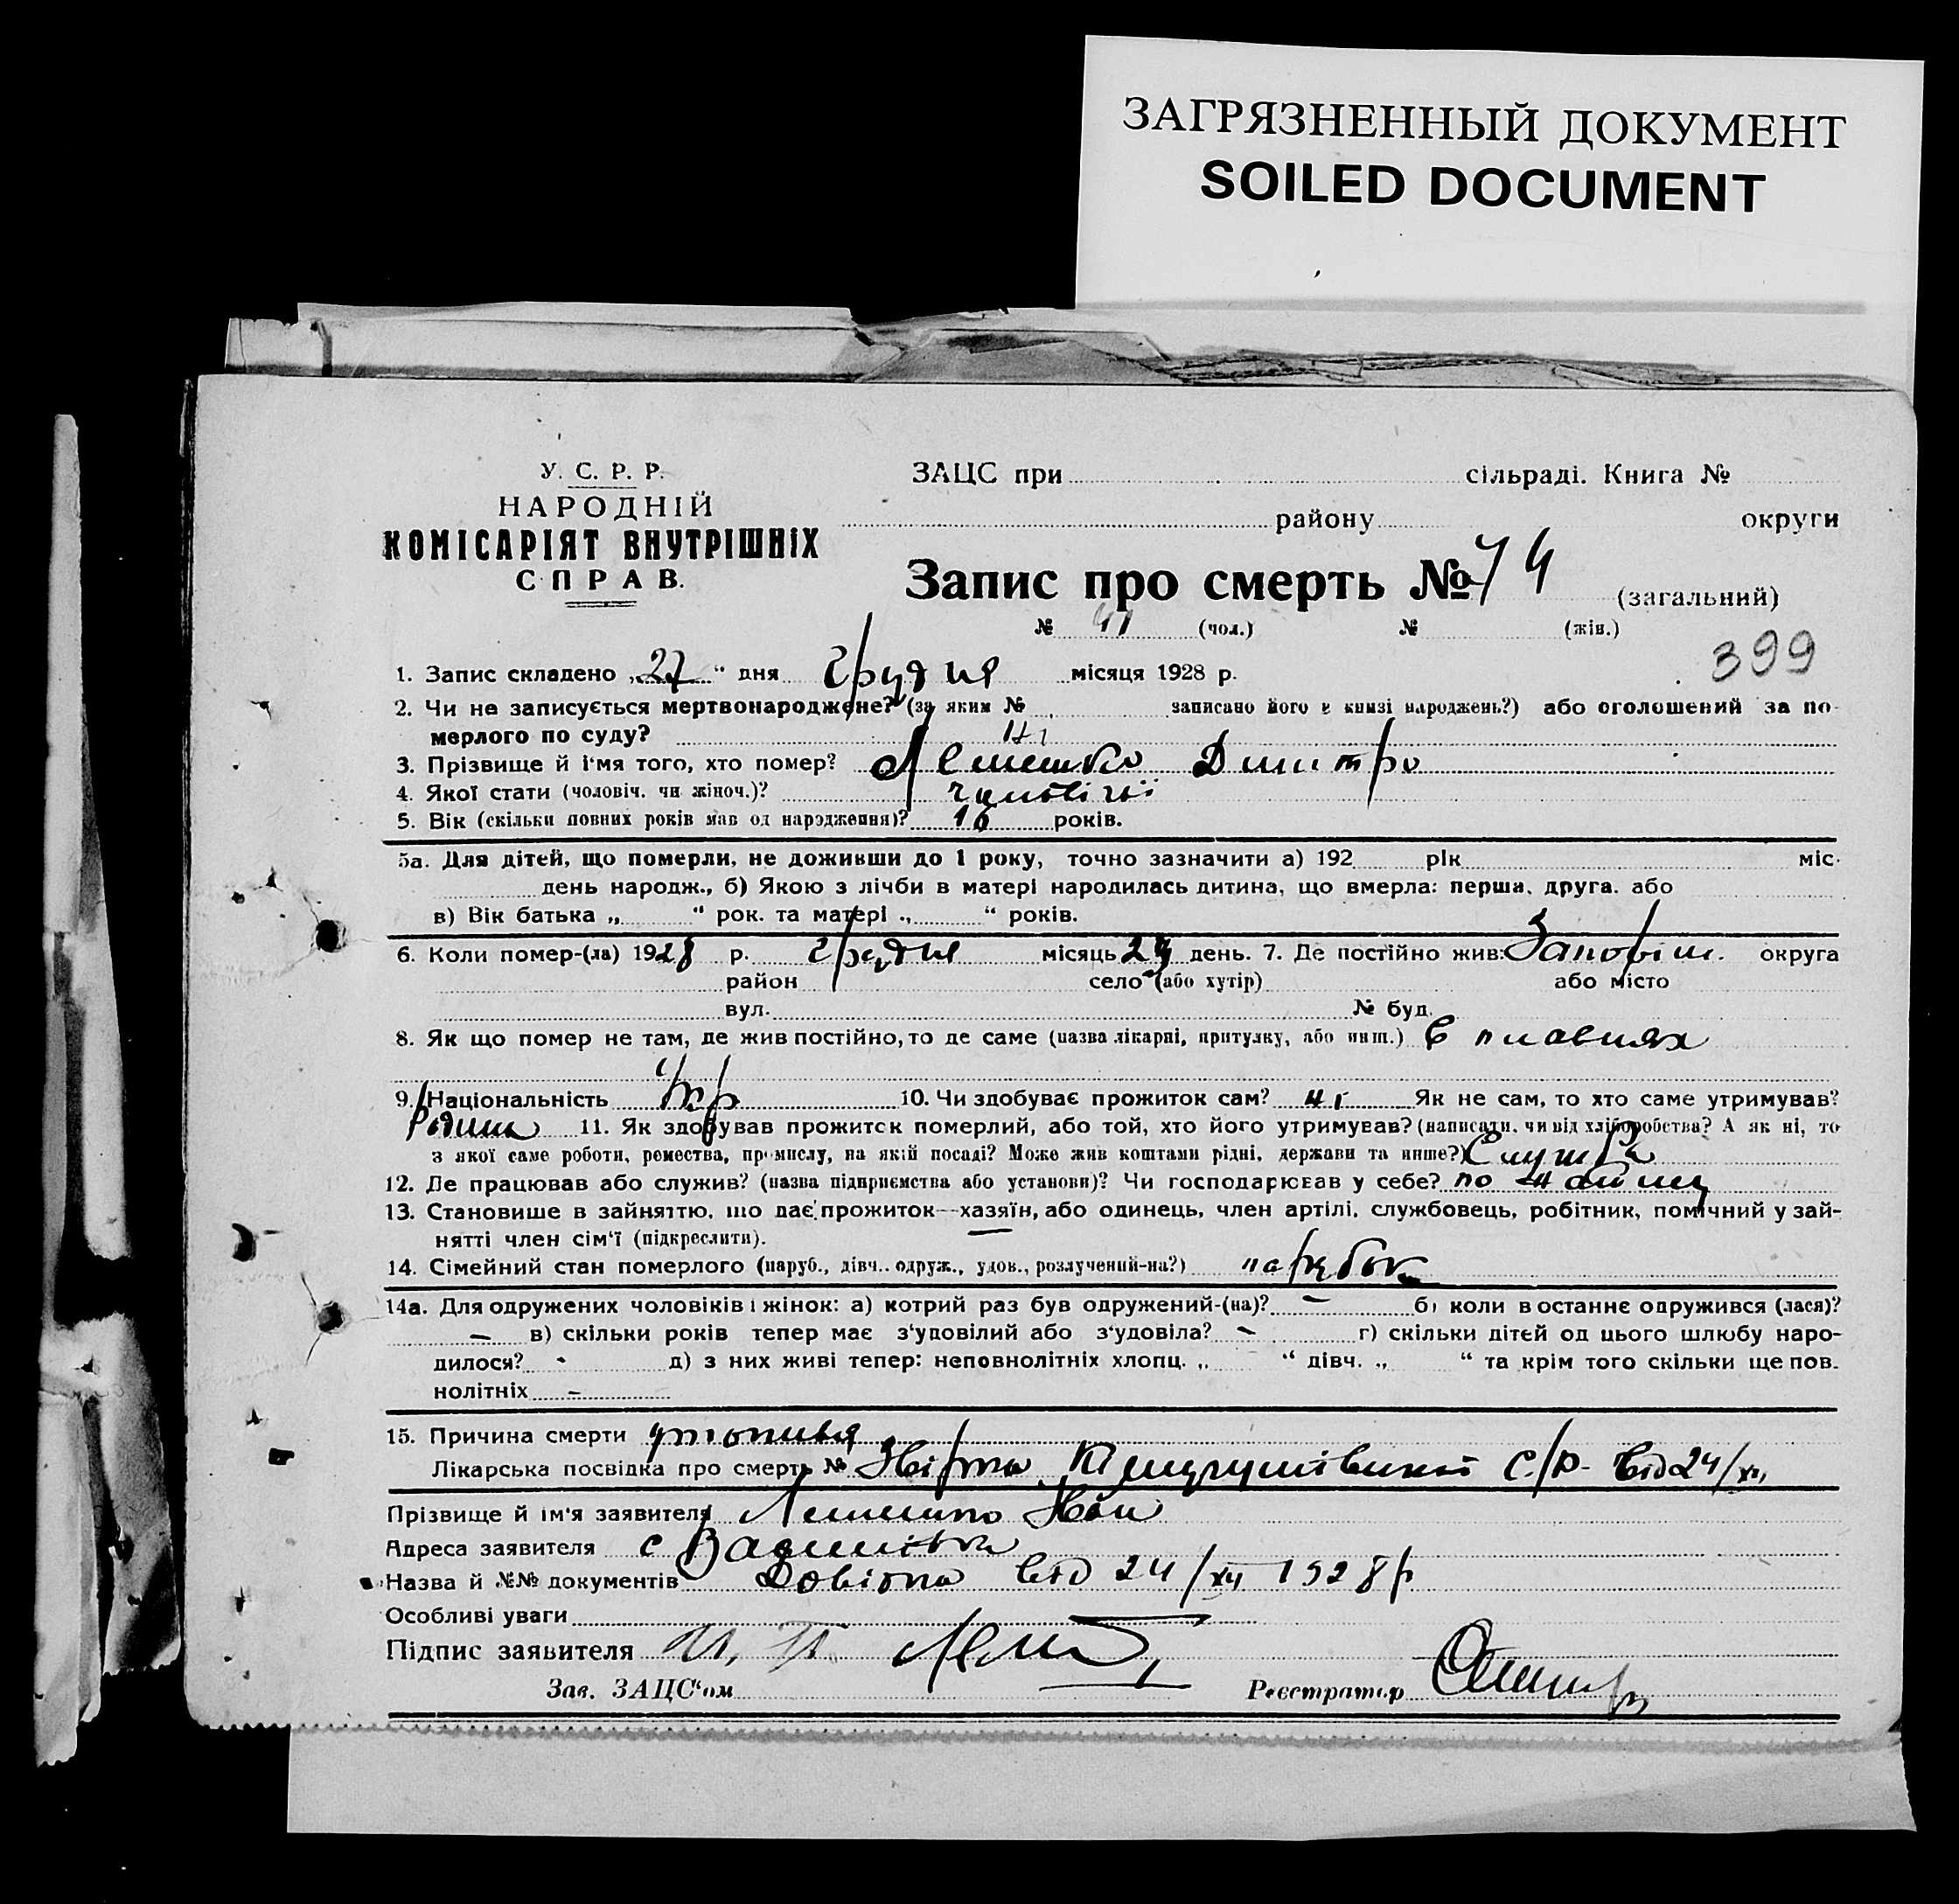 ЗАГРЯЗНЕННЫЙ ДОКУМЕНТ
SOILED DOCUMENT
У. С. Р. Р.
НАРОДНІЙ
КОМІСАРІЯТ ВНУТРІШНІХ
СПРАВ.
ЗАЦС при сільраді. Книга №
району округи
Запис про смерть № 74 (загальний)
№ 41 (чол.) № (жін.)
399
1. Запис складено „27“ дня грудня місяця 1928 р.
2. Чи не записується мертвонароджене? (за яким № записано його в книзі народжень?) або оголошений за по-
мерлого по суду? Ні
3. Прізвище й і'мя того, хто помер? Лемешко Дмитро
4. Якої стати (чоловіч. чи жіноч.)? чоловічої
5. Вік (скільки повних років мав од народження)? 16 років.
5а. Для дітей, що померли, не доживши до 1 року, точно зазначити а) 192 рік міс.
день народж., б) Якою з лічби в матері народилась дитина, що вмерла: перша, друга. або
в) Вік батька „ “ рок. та матері „ “ років.
6. Коли помер-(ла) 1928 р. грудня місяць день. 7. Де постійно жив: Запоріж. округа
район село (або хутір) або місто
вул. № буд.
8. Як що помер не там, де жив постійно, то де саме (назва лікарні, притулку, або инш.) в плавнях
9. Національність Укр 10. Чи здобуває прожиток сам? ні Як не сам, то хто саме утримував?
Родина 11. Як здобував прожиток померлий, або той, хто його утримував? (написати, чи від хліборобства? А як ні, то
з якої саме роботи, ремества, промислу, на якій посаді? Може жив коштами рідні, держави та инше?) Служба
12. Де працював або служив? (назва підприємства або установи)? Чи господарював у себе? по найму
13. Становише в зайняттю, що дає прожиток—хазяїн, або одинець, член артілі, службовець, робітник, помічний у зай-
нятті член сім'ї (підкреслити).
14. Сімейний стан померлого (паруб., дівч.. одруж., удов., розлучений-на?) парубок
14а. Для одружених чоловіків і жінок: а) котрий раз був одружений-(на)? – б) коли востаннє одружився (лася)?
– в) скільки років тепер має з'удовілий або з'удовіла? – г) скільки дітей од цього шлюбу наро-
дилося? - д) з них живі тепер: неповнолітніх хлопц. „ “ дівч. „ “ та крім того скільки ще пов.
нолітніх –
15. Причина смерти утопився
Лікарська посвідка про смерть № С/Р. від 24/XII
Прізвище й ім'я заявителя Лемешко Іван
Адреса заявителя с
Назва й №№ документів Довідка від 24/XII 1928 р
Особливі уваги
Підпис заявителя
Зав. ЗАЦС'ом Реєстратор